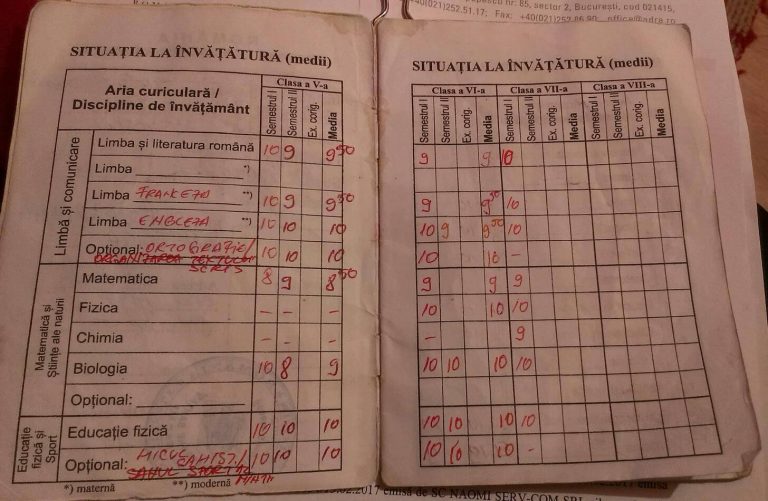 SITUAȚIA LA ÎNVĂȚĂTURĂ (medii)
Aria curiculară /
Discipline de învățământ
Clasa a V-a
Semestrul I
Semestrul II
Ex. corig.
Media
Limbă și comunicare
Limba și literatura română 10 9 9 50
Limba *)
Limba FRANCEZA **) 10 9 9 50
Limba ENGLEZA **) 10 10 10
Opțional: ORTOGRAFIE/ 10 10 10
ORGANIZAREA TEXTULUI
SCRIS
Matematică și
Științe ale naturii
Matematica 8 9 8 50
Fizica – – –
Chimia – – –
Biologia 10 8 9
Opțional:
Educație
fizică și
Sport
Educație fizică 10 10 10
Opțional: MICUL ȘAHIST/ 10 10 10
*) maternă **) modernă
SITUAȚIA LA ÎNVĂȚĂTURĂ (medii)
Clasa a VI-a Clasa a VII-a Clasa a VIII-a
Semestrul I Semestrul II Ex. corig. Media Semestrul I Semestrul II Ex. corig. Media Semestrul I Semestrul II Ex. corig. Media
9 9 10
9 9 50 10
10 9 9 50 10
10 10 –
9 9 9
10 10 10
– 9
10 10 10 10
10 10 10 10
10 10 10 –
nr: 85, sector 2, București, cod 021415,
+40(021)252.51.17; Fax: +40(021)252
.02.2017 emisă de SC NAOMI SERV-COM SRL
emisa